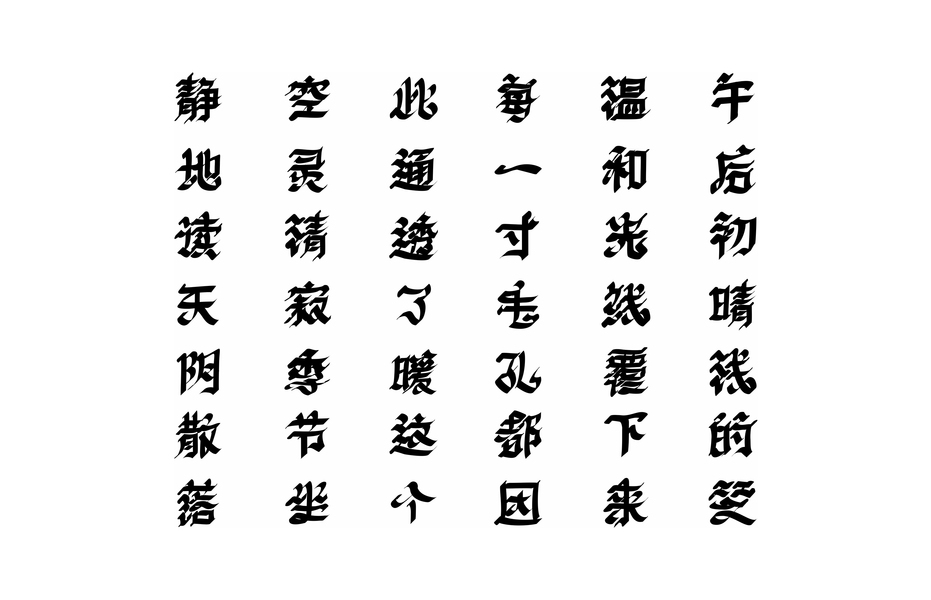 午后初晴浅的笑
温和光线覆下来
每一寸毛孔都因
此通透了暖这个
空灵清寂季节坐
静地读天阴散落